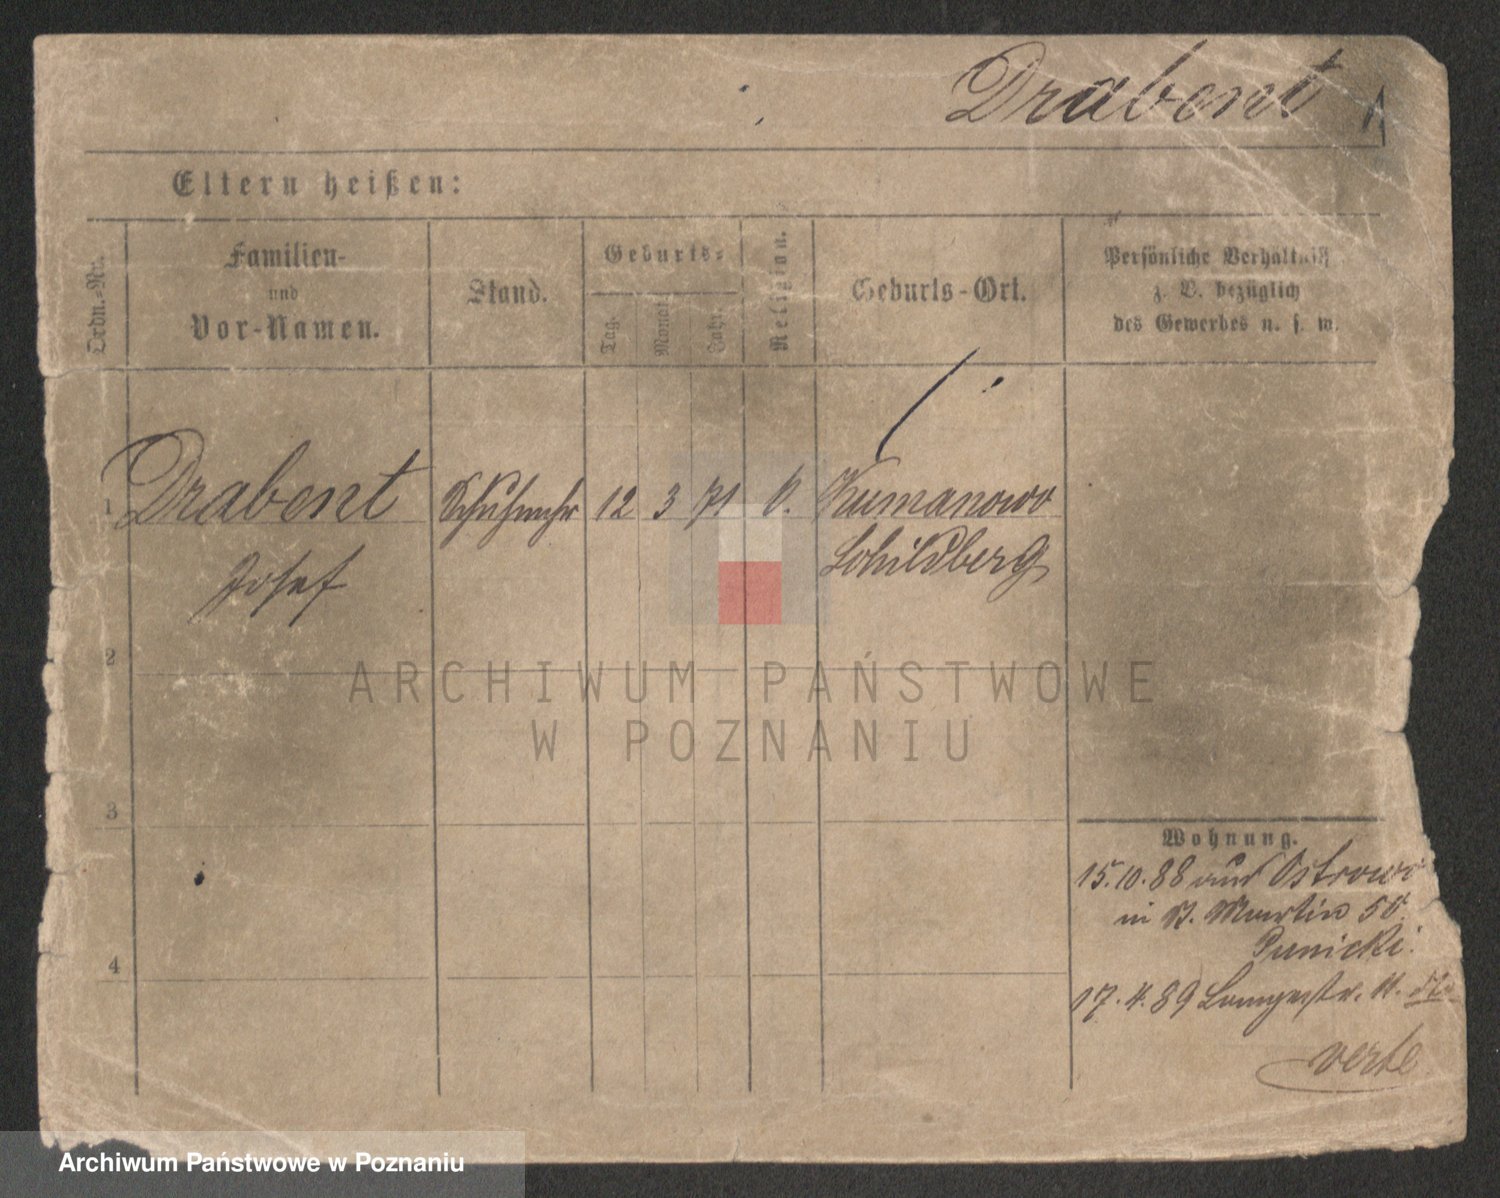 Drabent
Eltern heißen:
Ordn.-Nr.
Familien-
und
Vor-Namen.
Stand.
Geburts-
Tag.
Monat.
Jahr.
Religion.
Geburts-Ort.
Persönliche Verhältniß
z. B. bezüglich
des Gewerbes u. s. w.
1 Drabent 12 3 71 Kumanowo
Josef Schildberg
2
3
4
Wohnung.
15.10.88 aus Ostrowo
in St. Martin 50
Punicki.
17.4.89 Langestr. 11.
verte
ARCHIWUM PAŃSTWOWE
W POZNANIU
Archiwum Państwowe w Poznaniu